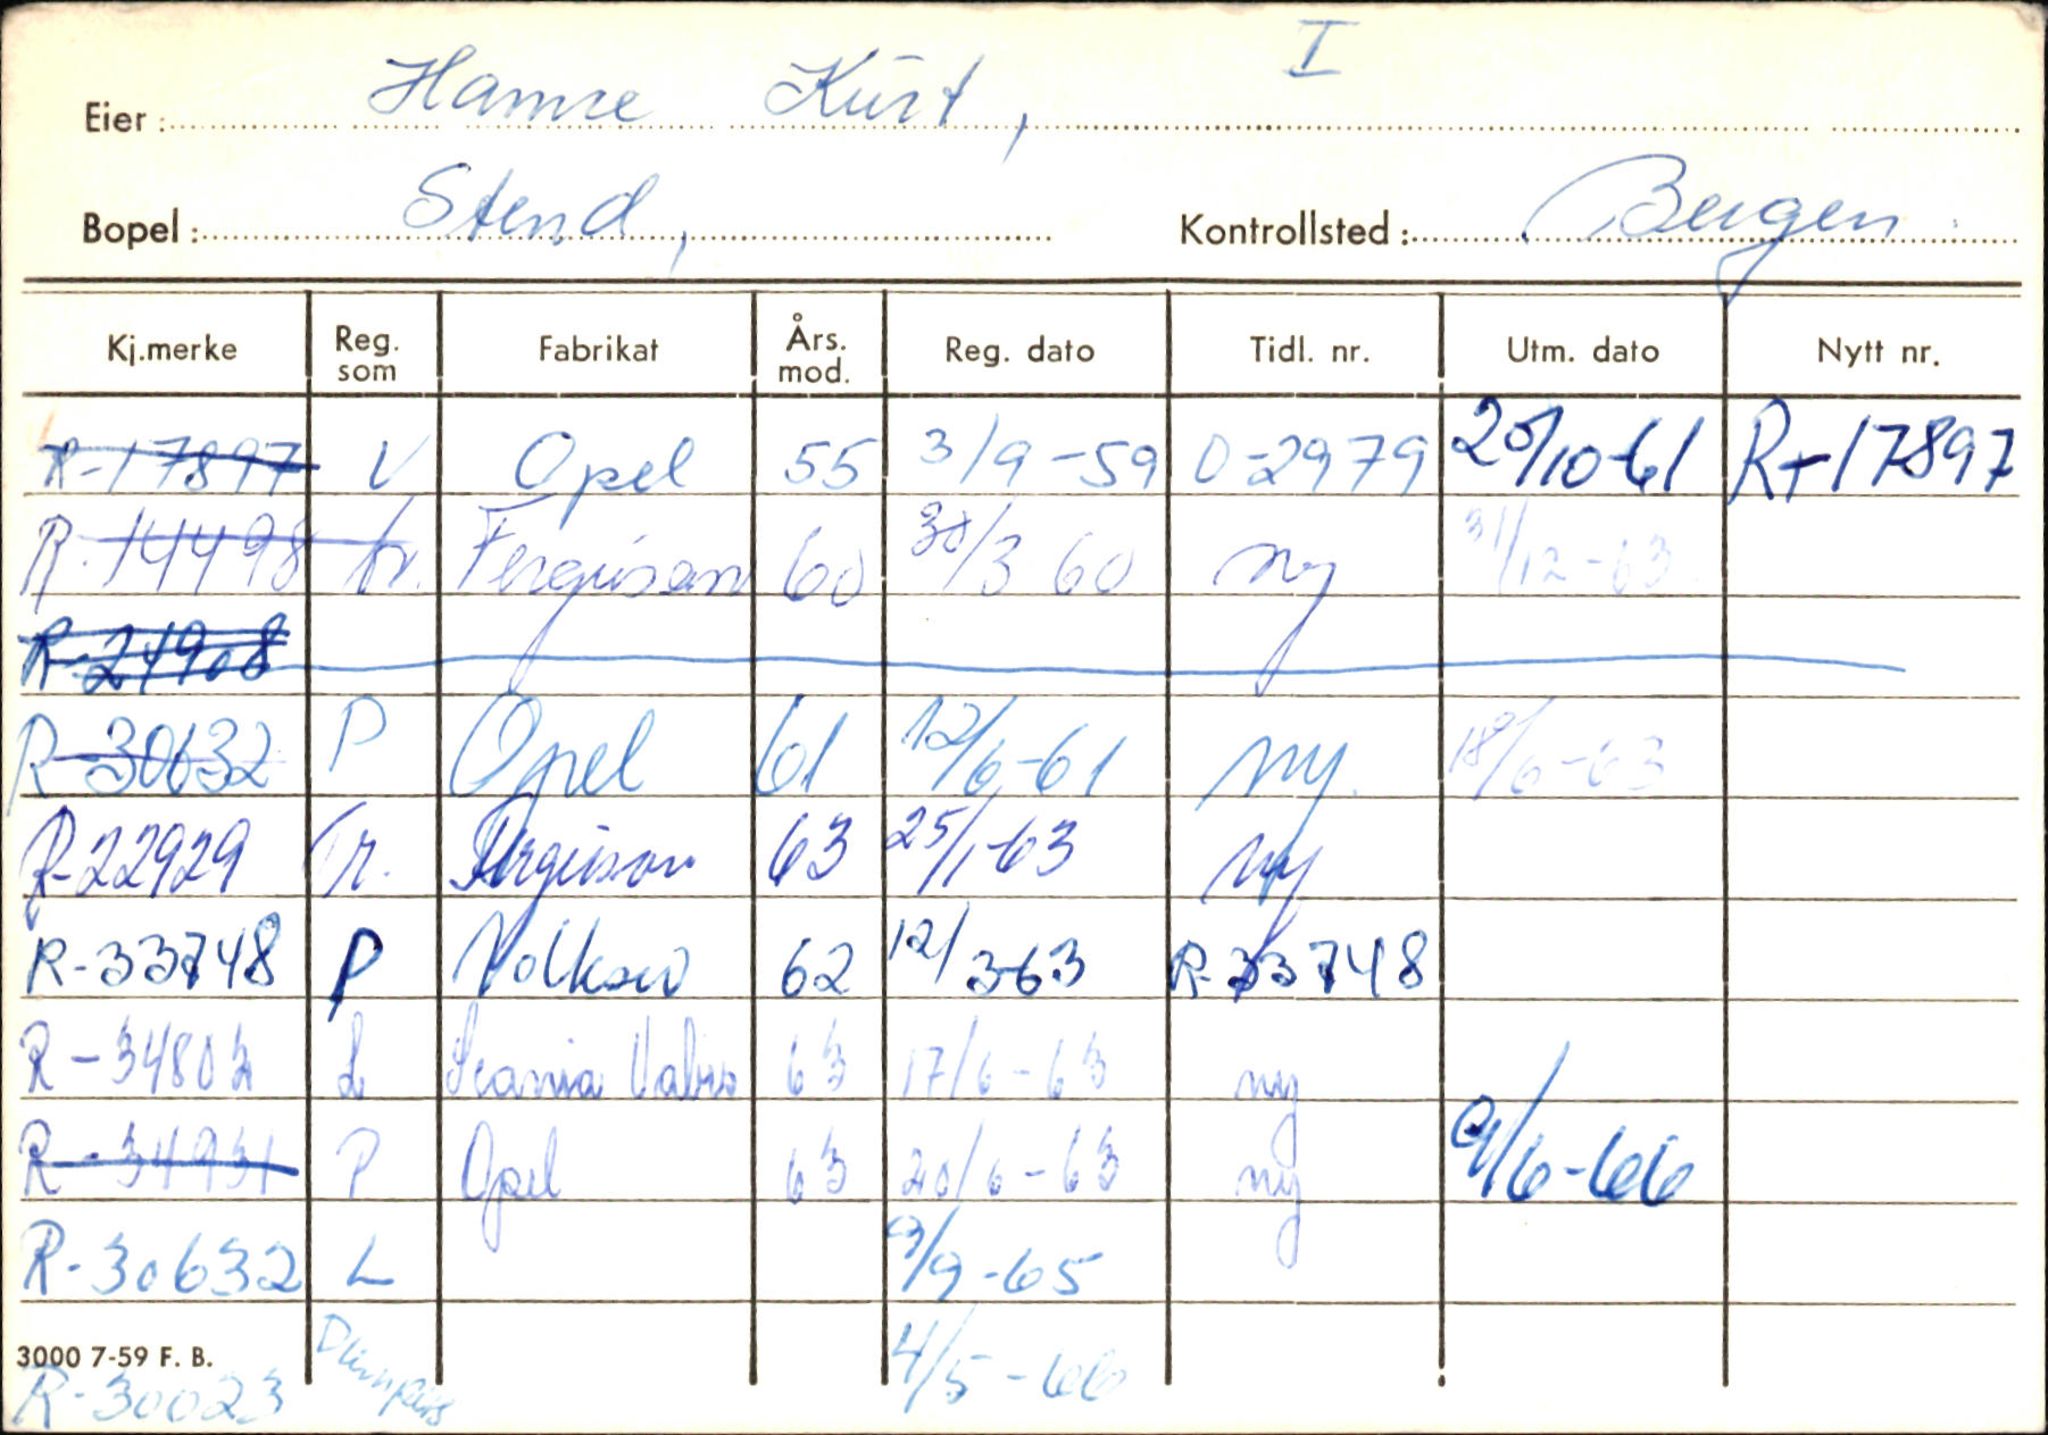 I
Eier: Hamre Kurt,
Bopel: Stend, Kontrollsted: Bergen
Kj.merke Reg. som Fabrikat Års. mod. Reg. dato Tidl. nr. Utm. dato Nytt nr.
R-17897 V Opel 55 3/9-59 O-2979 20/10-61 R-17897
R-14498 tr. Ferguson 60 30/3 60 ny 31/12-63
R-24908
R-30632 P Opel 61 12/6-61 ny. 18/6-63
R-22929 Tr. Ferguson 63 25/1-63 ny
R-33748 P Volksw 62 12/3-63 R-33748
R-34803 L Scania Vabis 63 17/6-63 ny
R-34931 P Opel 63 20/6-63 ny 9/6-66
R-30632 L 9/9-65
3000 7-59 F. B.
R-30023 4/5-66